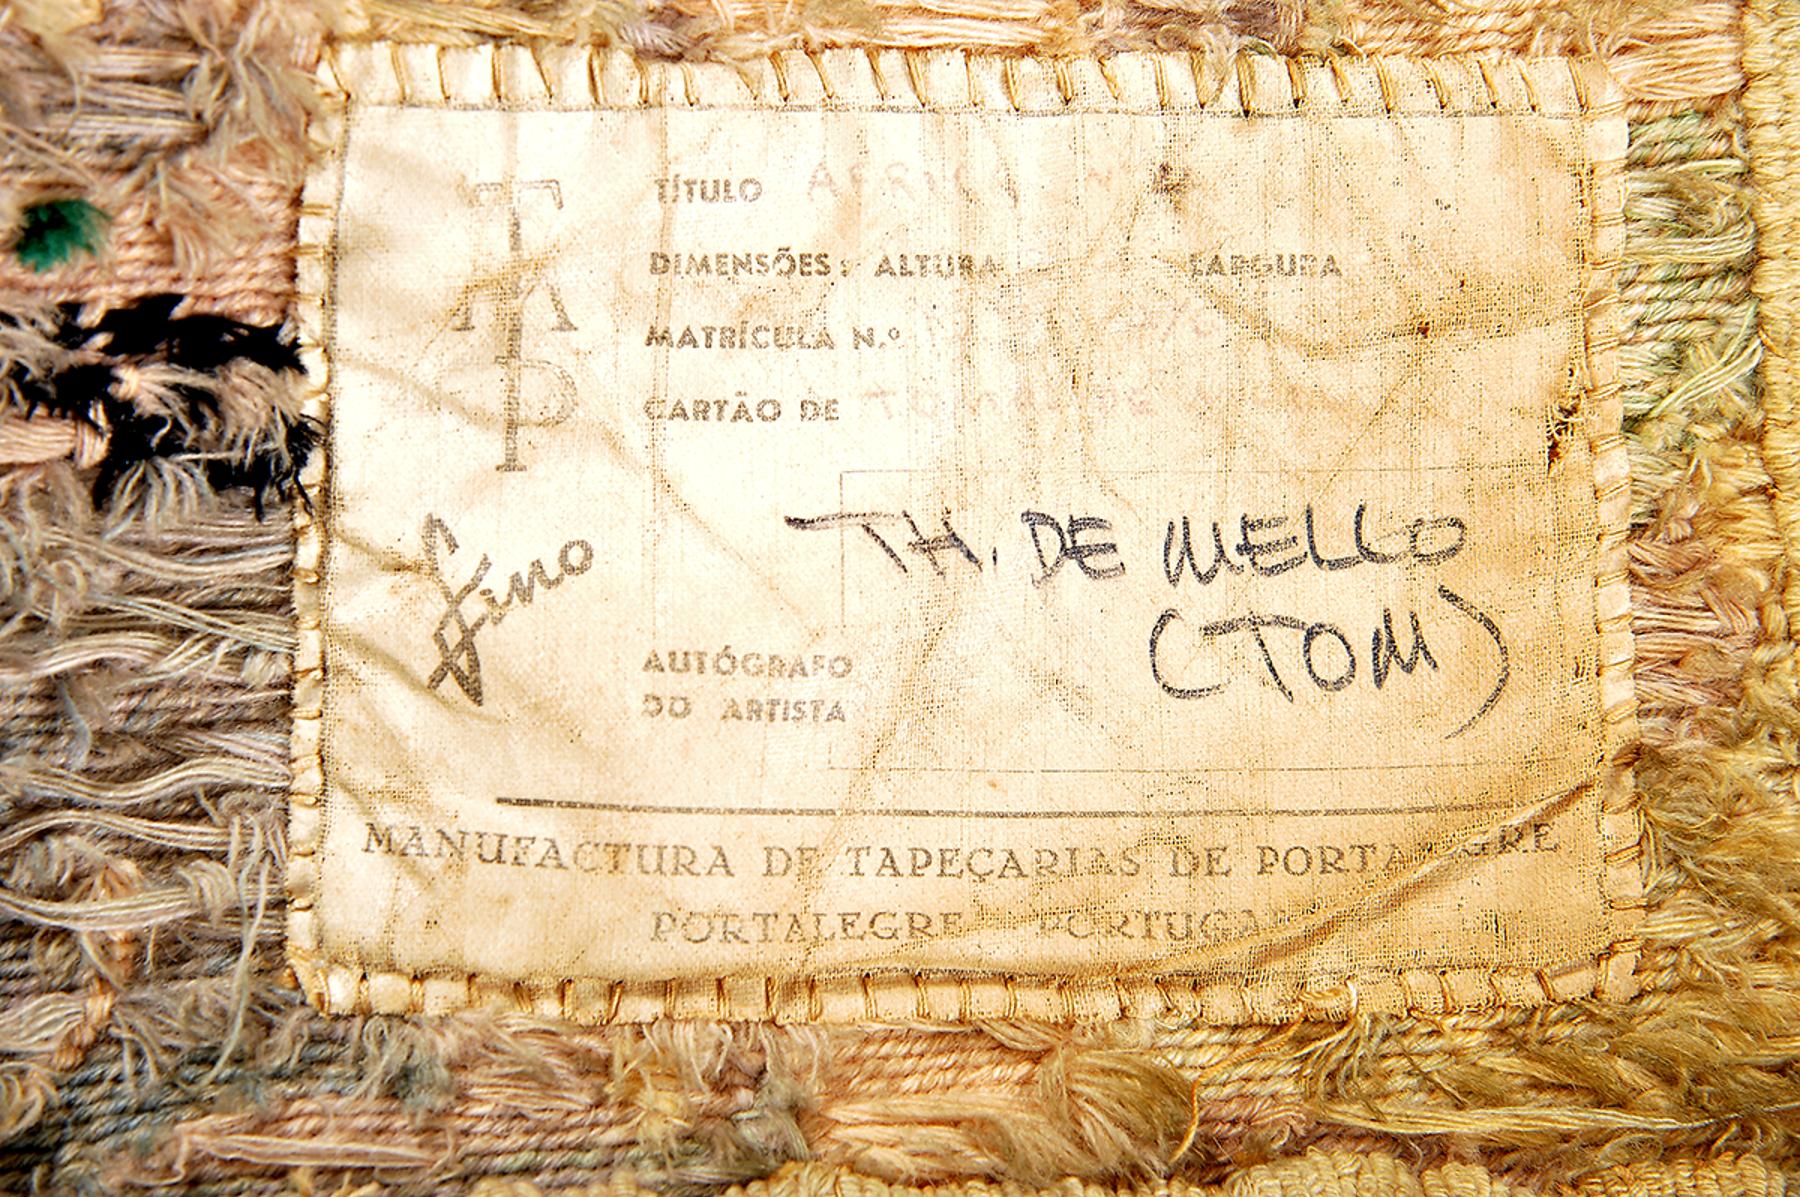 TÍTULO
DIMENSÕES: ALTURA LARGURA
MATRÍCULA N.º
CARTÃO DE
Fino
TH. DE MELLO
(TOM)
AUTÓGRAFO
DO ARTISTA
MANUFACTURA DE TAPEÇARIAS DE PORTALEGRE
PORTALEGRE PORTUGAL